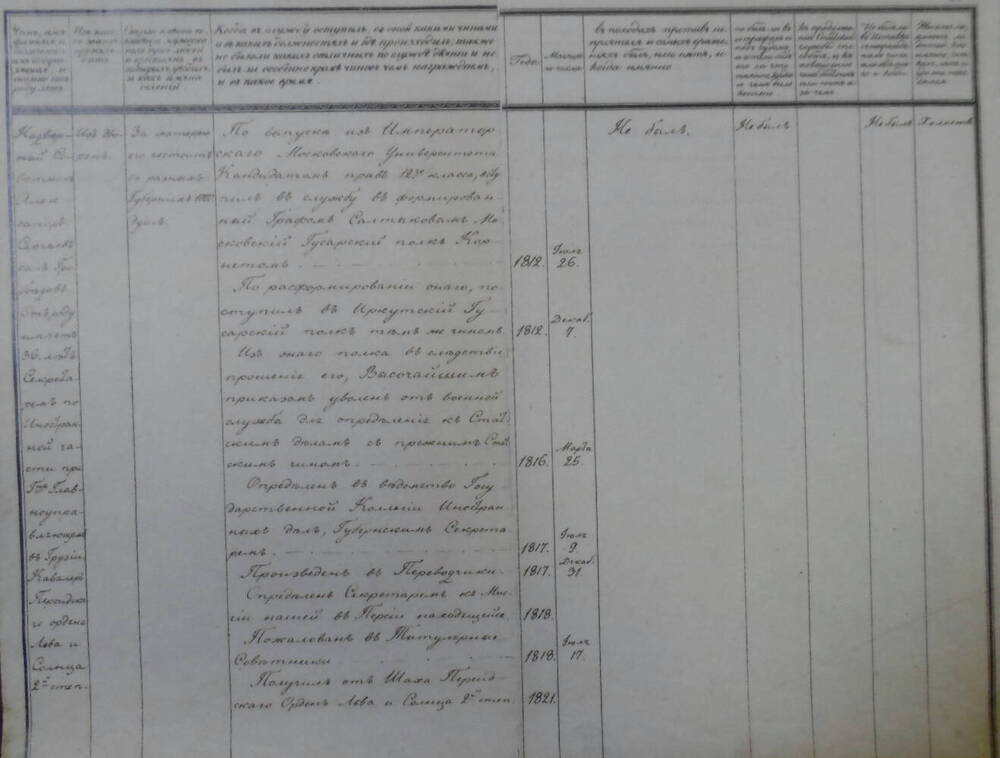 Когда въ службу вступилъ, въ оной какими чинами
и въ какихъ должностяхъ и гдѣ происходилъ, также
не было ли какихъ отличныхъ по службѣ дѣяній и не
былъ ли особенно кромѣ чиновъ чемъ награждаемъ,
и въ какое время.
Годы.
Месяцы
и числа
въ походахъ противъ не-
пріятеля и самыхъ сраже-
ніяхъ былъ, или нѣтъ, и
когда именно
Надвор-
ный Со-
вѣтникъ
Алек-
сандръ
Сергѣевъ
сынъ Гри-
боѣдовъ
Отъ роду
имѣетъ
36. лѣтъ
Секрета-
ремъ по
Иностран-
ной ча-
сти при
Гнѣ Глав-
ноуправ-
ляющемъ
въ Грузіи
Кавалеръ
Персидска-
го ордена
Льва и
Солнца
2й степ.
Изъ Дво-
рянъ.
За матерью
его состоитъ
въ разныхъ
Губерніяхъ
душъ.
По выпускѣ изъ Император-
скаго Московскаго Университета
Кандидатомъ правъ 12го класса, всту-
пилъ въ службу въ формирован-
ный Графомъ Салтыковымъ Мо-
сковскій Гусарскій полкъ Кор-
нетомъ. 1812. Іюля 26.
По расформированіи онаго, по-
ступилъ въ Иркутскій Гу-
сарскій полкъ тѣмъ же чиномъ 1812. Декаб. 7.
Изъ онаго полка въ слѣдствіе
прошенія его, Высочайшимъ
приказомъ уволенъ отъ военной
службы для опредѣленія къ Стат-
скимъ дѣламъ съ прежнимъ Стат-
скимъ чиномъ. 1816. Марта 25.
Опредѣленъ въ вѣдомство Госу-
дарственной Коллегіи Иностран-
ныхъ дѣлъ, Губернскимъ Секрета-
ремъ. 1817. Іюня 9.
Произведенъ въ Переводчики. 1817. Декаб. 31.
Опредѣленъ Секретаремъ къ Мис-
сіи нашей въ Персіи находящейся. 1818.
Пожалованъ въ Титулярные
Совѣтники 1818. Іюля 17.
Получилъ отъ Шаха Персид-
скаго Орденъ Льва и Солнца 2й степ. 1821.
Не былъ.
Не былъ
Не былъ
Холостъ